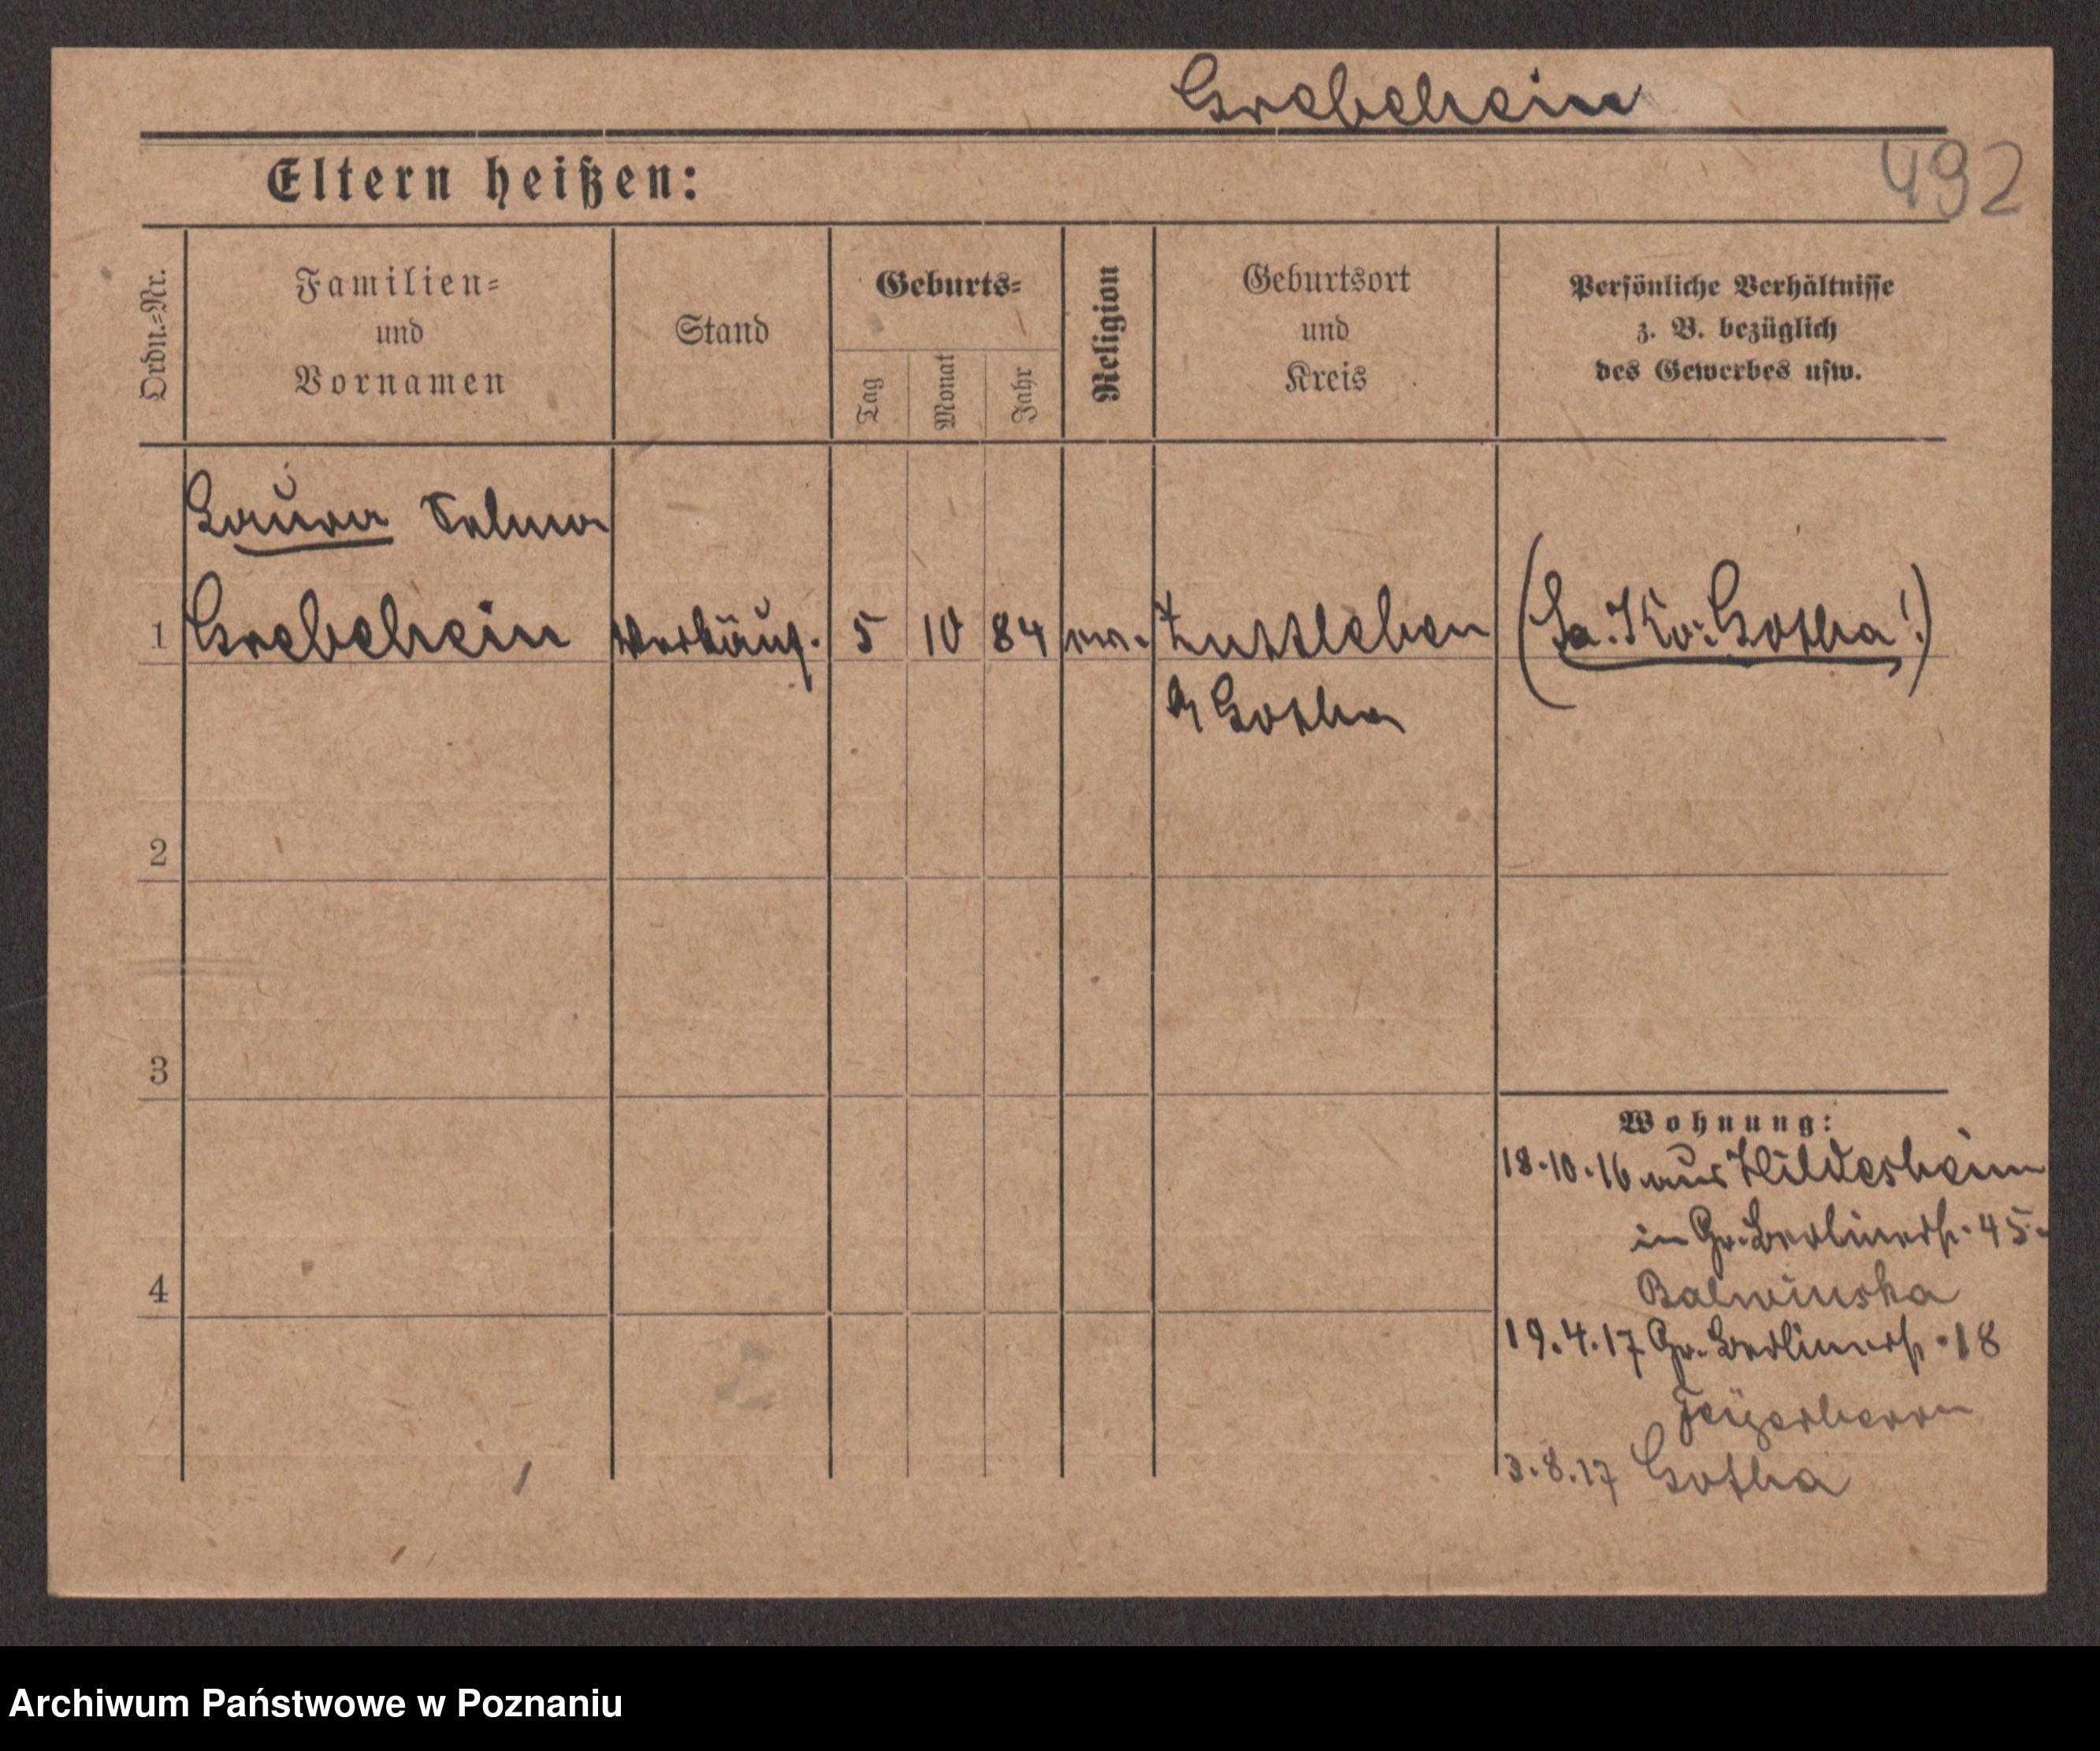 Grebehein
Eltern heißen:
492
Ordn.=Nr.
Familien=
und
Vornamen
Stand
Geburts=
Tag
Monat
Jahr
Religion
Geburtsort
und
Kreis
Persönliche Verhältnisse
z. B. bezüglich
des Gewerbes usw.
Laura Selma
1 Grebehein Verkäuf. 5 10 84 ev. (Sa. Ko. Gotha!)
Gotha
2
3
4
Wohnung:
18.10.16 aus Hildesheim
in Gr. Berlinerstr. 45.
Balwinska
19.4.17 Gr. Berlinerstr. 18
3.8.17 Gotha
Archiwum Państwowe w Poznaniu